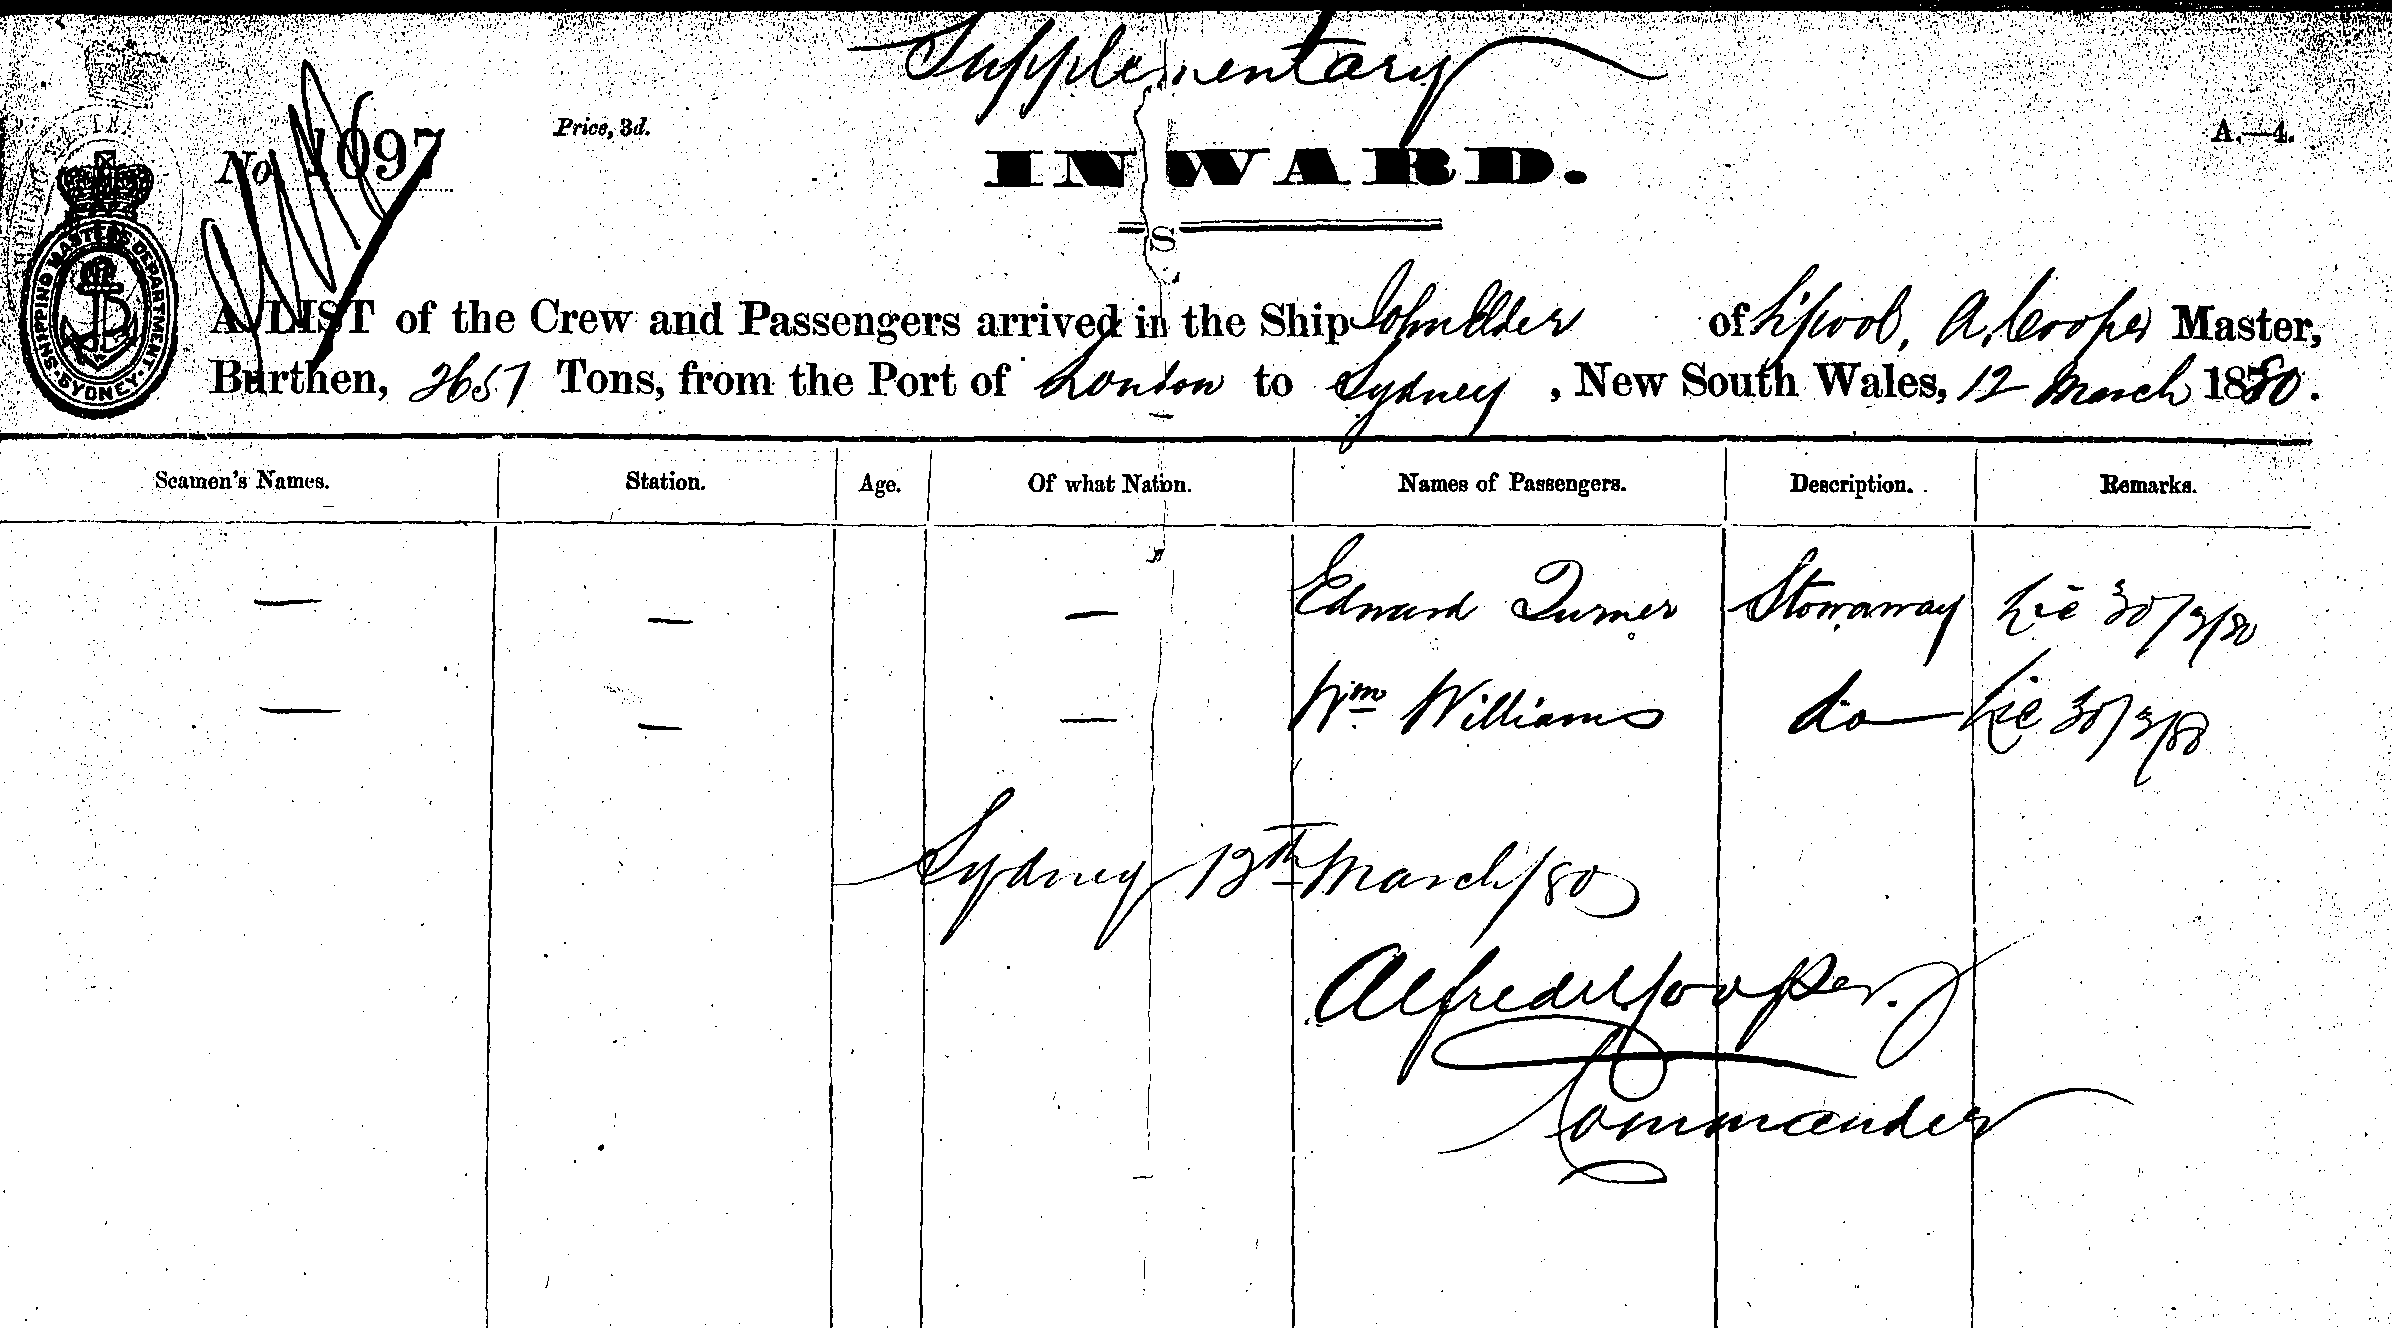 Supplementary
No. 1697
Price, 3d.
A.—4.
INWARD.
S
SHIPPING MASTERS DEPARTMENT. SYDNEY.
A LIST of the Crew and Passengers arrived in the Ship John Elder of L'pool, A. Cooper Master,
Burthen, 2657 Tons, from the Port of London to Sydney, New South Wales, 12 March 1880.
Seamen's Names. Station. Age. Of what Nation. Names of Passengers. Description. Remarks.
— — — Edward Turner Stowaway Lie 30/3/80
— — — Wm Williams do— Lie 30/3/80
Sydney 13th March/80
Alfred Cooper.
Commander